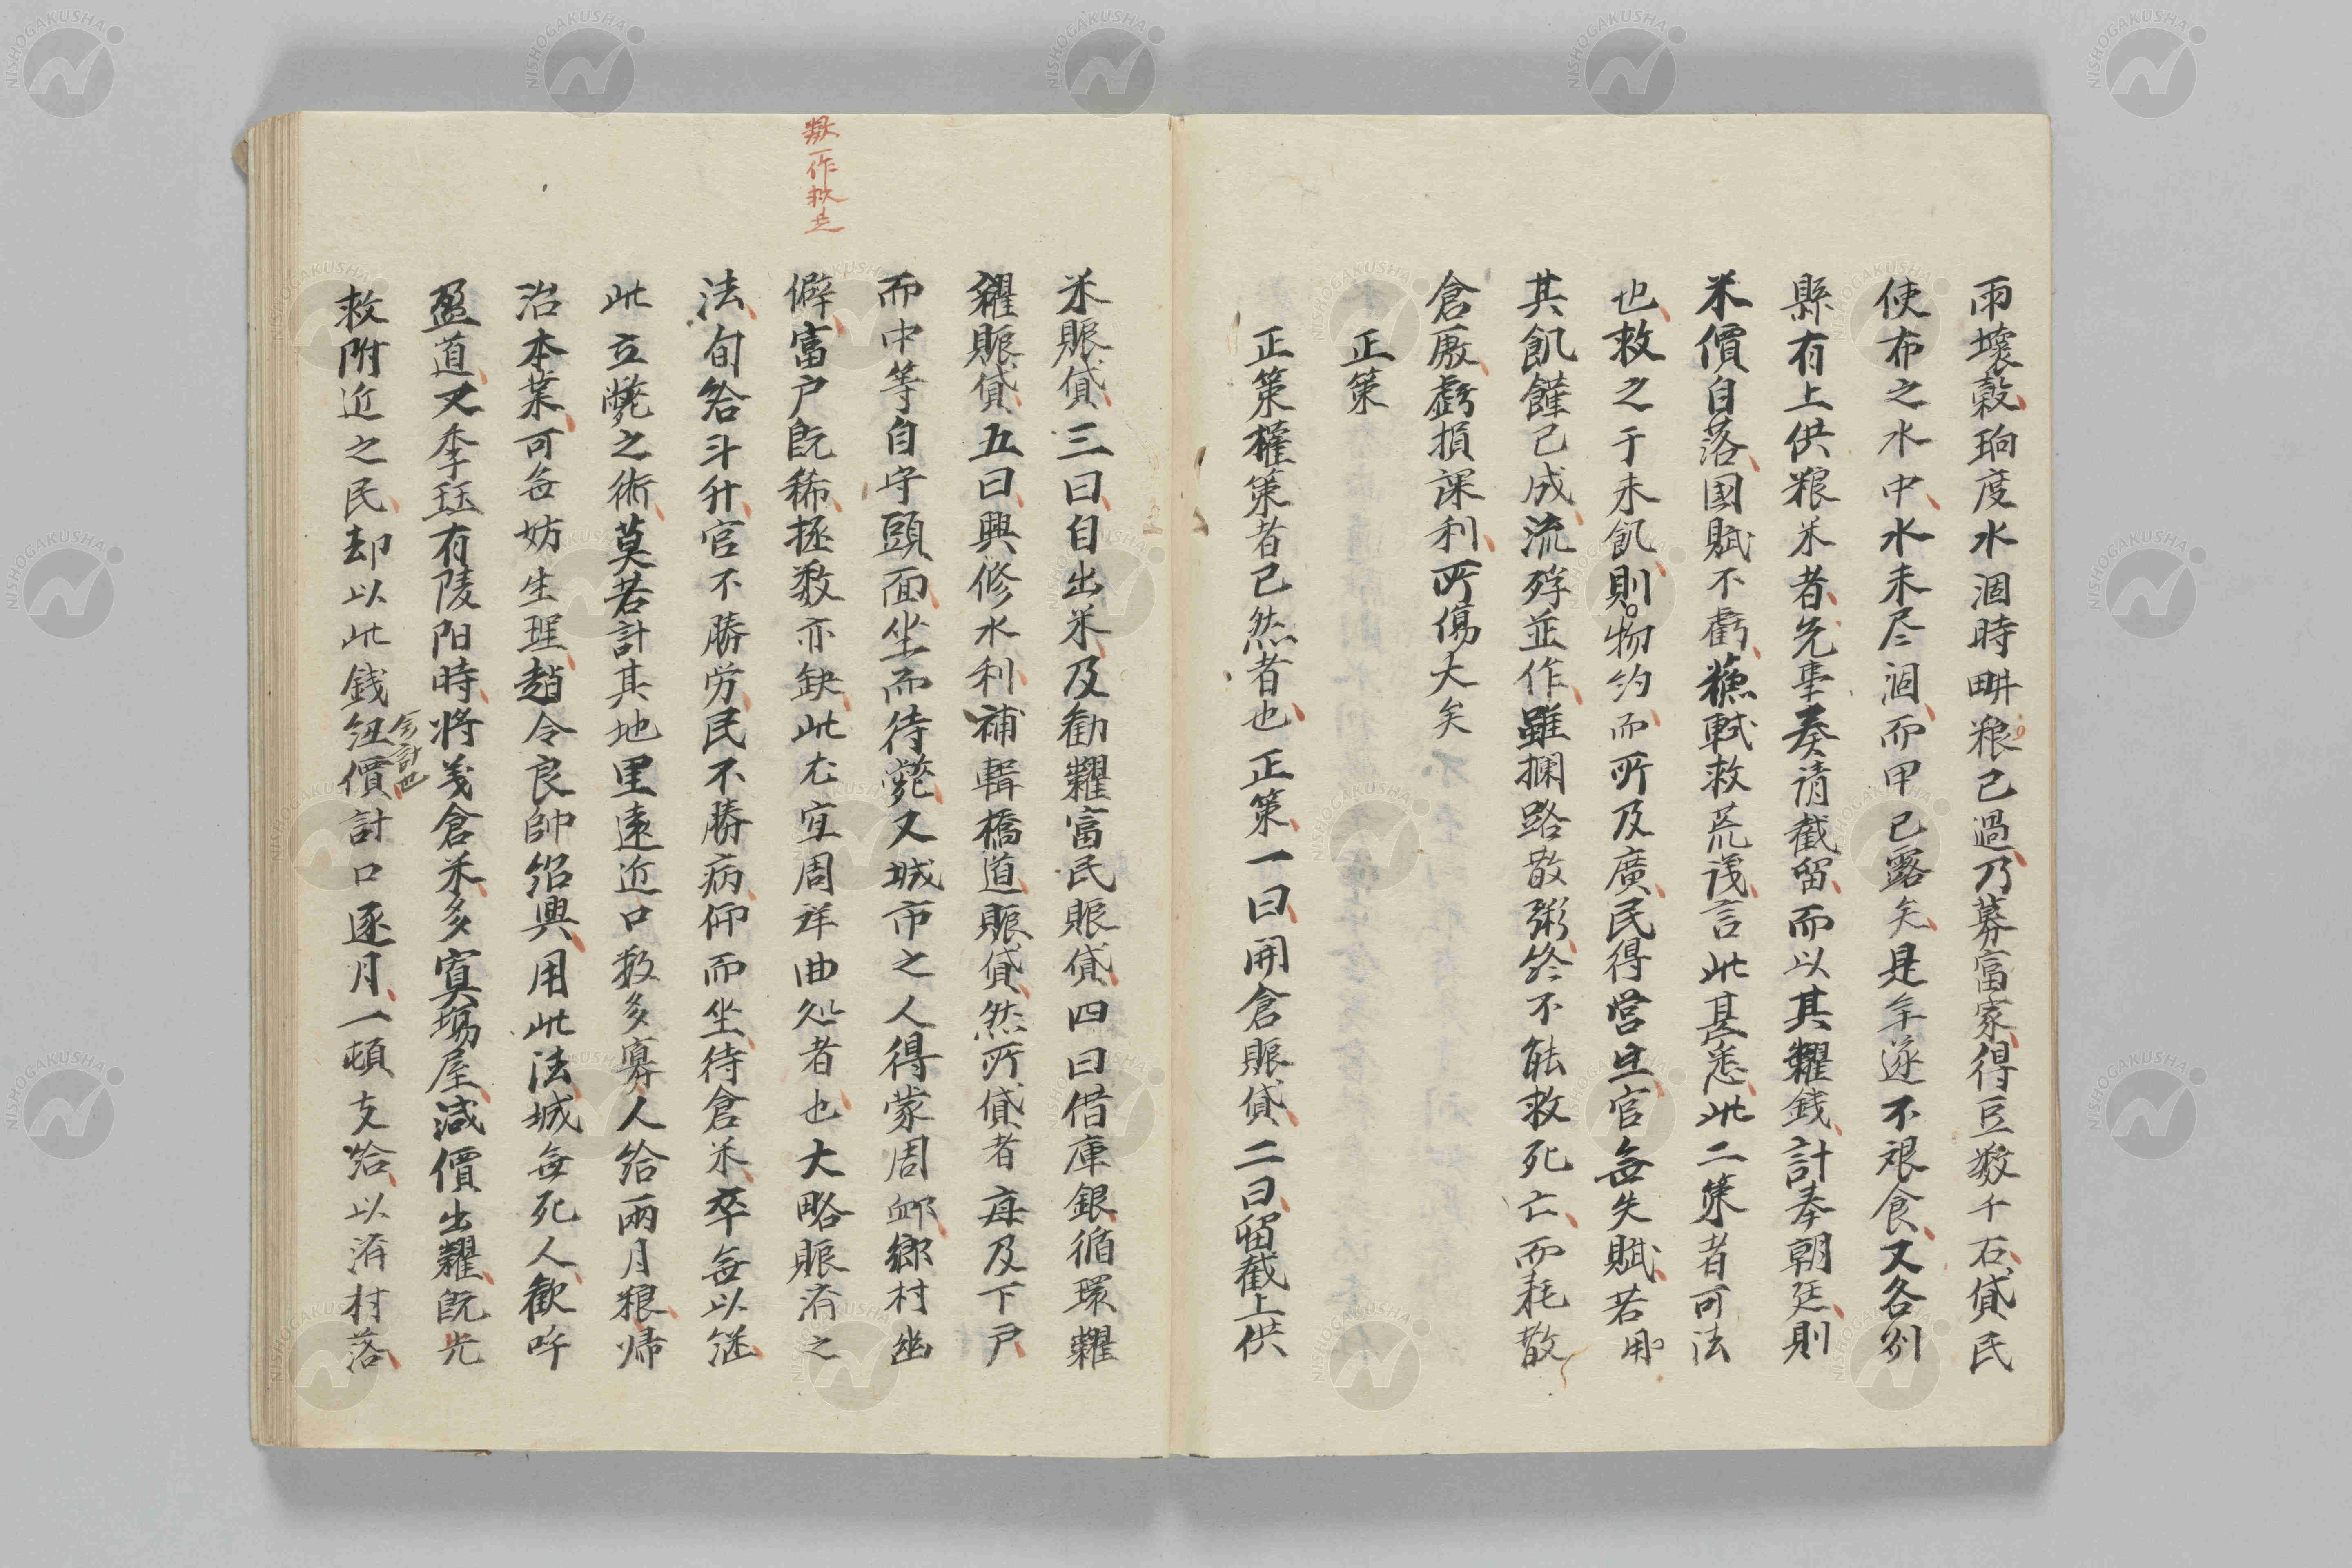 雨壞穀、珦度水涸時耕粮已過、乃募富家、得豆数千石、貸民
使布之水中、水未尽涸、而甲已露矣、是年遂不艱食、又各州
縣有上供粮米者、先事奏請截留、而以其糶銭、計奉朝廷、則
米價自落、国賦不虧、蘓軾救荒議、言此甚悉、此二策者可法
也、救之于未飢、則物約而所及廣、民得営生、官無失賦、若用
其飢饉已成、流殍並作、雖攔路散粥、終不能救死亡、而耗散
倉廒、虧損課利、所傷大矣
正策
正策権策者已然者也、正策、一曰、開倉賑貸、二曰、留截上供
米賑貸、三曰、自出米、及勧糶富民賑貸、四曰借庫銀循環糶
糴賑貸、五曰、興修水利、補輯橋道、賑貸、然所貸者毎及下戸
而中等自守頭面、坐而待斃、又城市之人得蒙周卹、郷村幽
僻、富戸既稀、拯数亦缺、此尤宜周詳曲処者也、大略賑済之
法、旬給斗升、官不勝労、民不勝病、仰而坐待倉米、卒無以継
此立斃之術、莫若計其地里遠近、口数多寡、人給両月粮、帰
治本業、可無妨生理、趙令良帥紹興、用此法、城無死人、歓呼
盈道、又李珏有陵陽時、将義倉米、多寘場屋、減價出糶、既先
救附近之民、却以此銭紐價、計口逐月、一頓支給、以済村落、
会計也
数一作救是
NISHOGAKUSHA